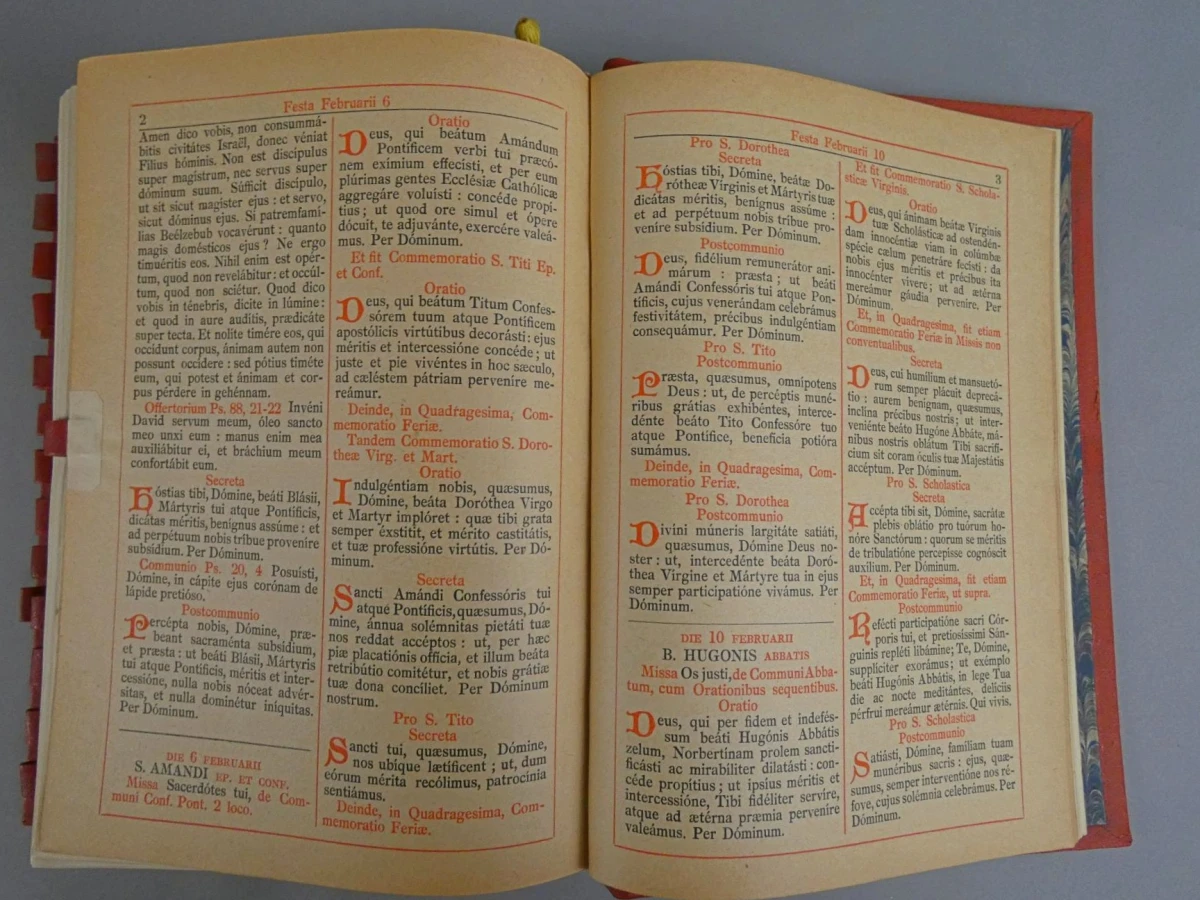 2
Festa Februarii 6
Amen dico vobis, non consummá-
bitis civitátes Israël, donec véniat
Filius hóminis. Non est discipulus
super magistrum, nec servus super
dóminum suum. Súfficit discípulo,
ut sit sicut magíster ejus : et servo,
sicut dóminus ejus. Si patremfamí-
lias Beélzebub vocavérunt : quanto
magis domésticos ejus ? Ne ergo
timuéritis eos. Nihil enim est opér-
tum, quod non revelábitur : et occúl-
tum, quod non sciétur. Quod dico
vobis in ténebris, dícite in lúmine :
et quod in aure audítis, prædicáte
super tecta. Et nolíte timére eos, qui
occídunt corpus, ánimam autem non
possunt occídere : sed pótius timéte
eum, qui potest et ánimam et cor-
pus pérdere in gehénnam.
Offertorium Ps. 88, 21-22 Invéni
David servum meum, óleo sancto
meo unxi eum : manus enim mea
auxiliábitur ei, et bráchium meum
confortábit eum.
Secreta
Hóstias tibi, Dómine, beáti Blásii,
Mártyris tui atque Pontíficis,
dicátas méritis, benígnus assúme : et
ad perpétuum nobis tríbue proveníre
subsídium. Per Dóminum.
Communio Ps. 20, 4 Posuísti,
Dómine, in cápite ejus corónam de
lápide pretióso.
Postcommunio
Percépta nobis, Dómine, præ-
beant sacraménta subsídium,
et præsta : ut beáti Blásii, Mártyris
tui atque Pontíficis, méritis et inter-
cessióne, nulla nobis nóceat advér-
sitas, et nulla dominétur iníquitas.
Per Dóminum.
DIE 6 FEBRUARII
S. AMANDI EP. ET CONF.
Missa Sacerdótes tui, de Com-
muni Conf. Pont. 2 loco.
Oratio
Deus, qui beátum Amándum
Pontíficem verbi tui præcó-
nem exímium effecísti, et per eum
plúrimas gentes Ecclésiæ Cathólicæ
aggregáre voluísti : concéde propí-
tius ; ut quod ore simul et ópere
dócuit, te adjuvánte, exercére valeá-
mus. Per Dóminum.
Et fit Commemoratio S. Titi Ep.
et Conf.
Oratio
Deus, qui beátum Titum Confes-
sórem tuum atque Pontíficem
apostólicis virtútibus decorásti : ejus
méritis et intercessióne concéde ; ut
juste et pie vivéntes in hoc sæculo,
ad cæléstem pátriam perveníre me-
reámur.
Deinde, in Quadragesima, Com-
memoratio Feriæ.
Tandem Commemoratio S. Doro-
theæ Virg. et Mart.
Oratio
Indulgéntiam nobis, quæsumus,
Dómine, beáta Dorothéa Virgo
et Martyr implóret : quæ tibi grata
semper éxstitit, et mérito castitátis,
et tuæ professióne virtútis. Per Dó-
minum.
Secreta
Sancti Amándi Confessóris tui
atque Pontíficis, quæsumus, Dó-
mine, ánnua solémnitas pietáti tuæ
nos reddat accéptos : ut, per hæc
piæ placatiónis officia, et illum beáta
retribútio comitétur, et nobis grátiæ
tuæ dona concíliet. Per Dóminum
nostrum.
Pro S. Tito
Secreta
Sancti tui, quæsumus, Dómine,
nos ubíque lætíficent ; ut, dum
eórum mérita recólimus, patrocínia
sentiámus.
Deinde, in Quadragesima, Com-
memoratio Feriæ.
Festa Februarii 10
3
Pro S. Dorothea
Secreta
Hóstias tibi, Dómine, beátæ Do-
róthéæ Vírginis et Mártyris tuæ
dicátas méritis, benígnus assúme :
et ad perpétuum nobis tríbue pro-
veníre subsídium. Per Dóminum.
Postcommunio
Deus, fidélium remunerátor ani-
márum : præsta ; ut beáti
Amándi Confessóris tui atque Pon-
tíficis, cujus venerándam celebrámus
festivitátem, précibus indulgéntiam
consequámur. Per Dóminum.
Pro S. Tito
Postcommunio
Præsta, quæsumus, omnípotens
Deus : ut, de percéptis muné-
ribus grátias exhibéntes, interce-
dénte beáto Tito Confessóre tuo
atque Pontífice, beneficia potióra
sumámus.
Deinde, in Quadragesima, Com-
memoratio Feriæ.
Pro S. Dorothea
Postcommunio
Divíni múneris largitáte satiáti,
quæsumus, Dómine Deus no-
ster : ut, intercedénte beáta Doró-
thea Vírgine et Mártyre tua in ejus
semper participatióne vivámus. Per
Dóminum.
DIE 10 FEBRUARII
B. HUGONIS ABBATIS
Missa Os justi, de Communi Abba-
tum, cum Orationibus sequentibus.
Oratio
Deus, qui per fidem et indefés-
sum beáti Hugónis Abbátis
zelum, Norbertínam prolem sancti-
ficásti ac mirabíliter dilatásti : con-
céde propítius ; ut ipsíus méritis et
intercessióne, Tibi fidéliter servíre,
atque ad ætérna præmia perveníre
valeámus. Per Dóminum.
Et fit Commemoratio S. Schola-
sticæ Virginis.
Oratio
Deus, qui ánimam beátæ Vírginis
tuæ Scholásticæ ad ostendén-
dam innocéntiæ viam in colúmbæ
spécie cælum penetráre fecísti : da
nobis ejus méritis et précibus ita
innocénter vívere ; ut ad ætérna
mereámur gáudia perveníre. Per
Dóminum.
Et, in Quadragesima, fit etiam
Commemoratio Feriæ in Missis non
conventualibus.
Secreta
Deus, cui humílium et mansuetó-
rum semper plácuit deprecá-
tio : aurem benígnam, quæsumus,
inclína précibus nostris ; ut inter-
veniénte beáto Hugóne Abbáte, má-
nibus nostris oblátum Tibi sacrifí-
cium sit coram óculis tuæ Majestátis
accéptum. Per Dóminum.
Pro S. Scholastica
Secreta
Accépta tibi sit, Dómine, sacrátæ
plebis oblátio pro tuórum ho-
nóre Sanctórum : quorum se méritis
de tribulatióne percepísse cognóscit
auxílium. Per Dóminum.
Et, in Quadragesima, fit etiam
Commemoratio Feriæ, ut supra.
Postcommunio
Refécti participatióne sacri Cór-
poris tui, et pretiosíssimi Sán-
guinis repléti libámine; Te, Dómine,
supplíciter exorámus; ut exémplo
beáti Hugónis Abbátis, in lege Tua
die ac nocte meditántes, delíciis
pérfrui mereámur ætérnis. Qui vivis.
Pro S. Scholastica
Postcommunio
Satiásti, Dómine, famíliam tuam
munéribus sacris : ejus, quæ-
sumus, semper interventióne nos ré-
fove, cujus solémnia celebrámus. Per
Dóminum.